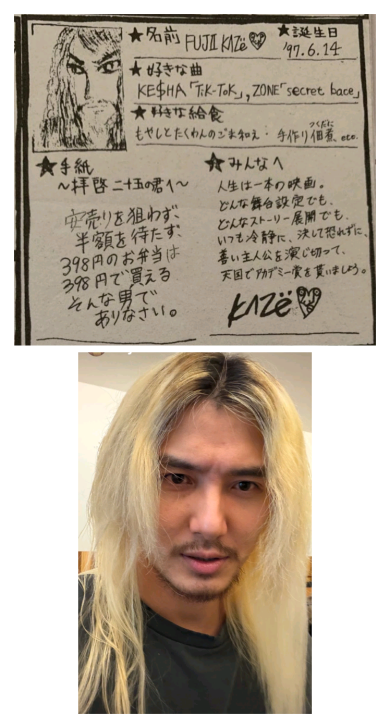 ★名前 FUJII KAZë
★誕生日
'97.6.14
★好きな曲
KE$HA「TiK-ToK」, ZONE「secret base」
★好きな給食
もやしとたくわんのごま和え・手作り佃煮, etc.
つくだに
★手紙
〜拝啓 二十五の君へ〜
安売りを狙わず、
半額を待たず、
398円のお弁当は
398円で買える
そんな男で
ありなさい。
★みんなへ
人生は一本の映画。
どんな舞台設定でも、
どんなストーリー展開でも、
いつも冷静に、決して恐れずに、
善い主人公を演じ切って、
天国でアカデミー賞を貰いましょう。
KAZë